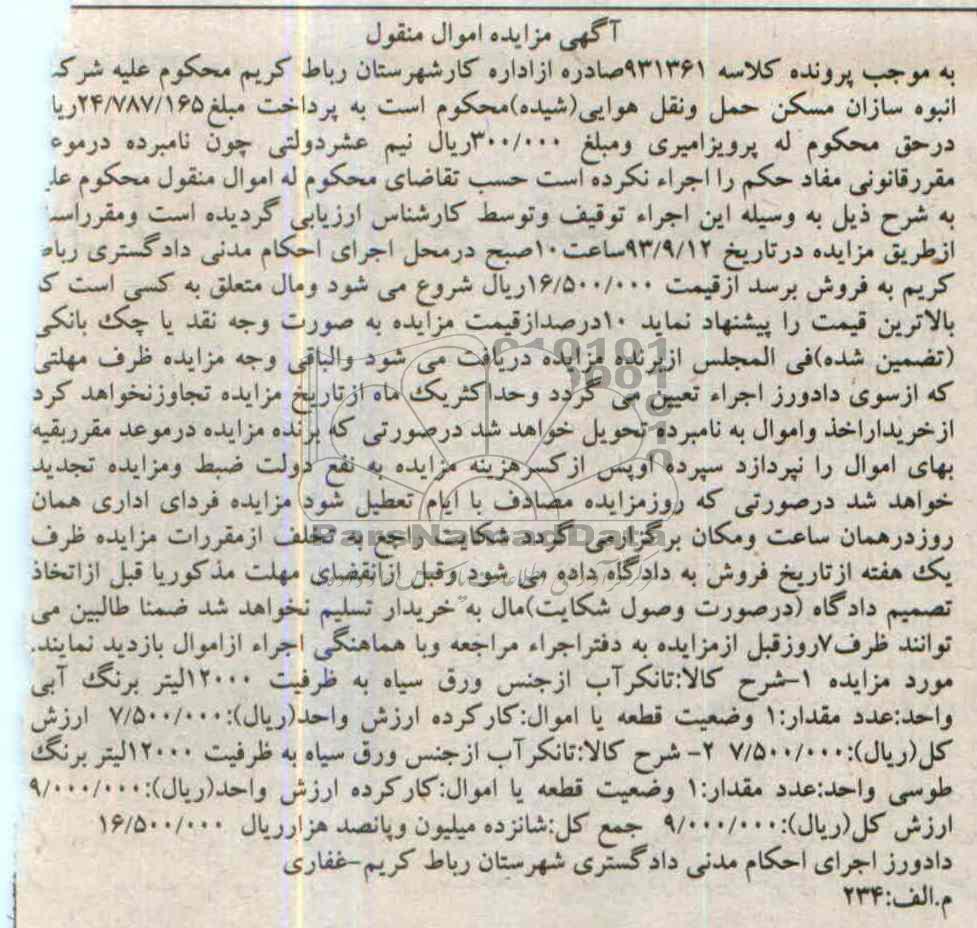 آگهی مزایده اموال منقول
به موجب پرونده کلاسه ۹۳۱۳۶۱صادره ازاداره کارشهرستان رباط کریم محکوم علیه شرکت
انبوه سازان مسکن حمل ونقل هوایی(شیده)محکوم است به پرداخت مبلغ۲۴/۷۸۷/۱۶۵ریا
درحق محکوم له پرویزامیری ومبلغ ۳۰۰/۰۰۰ریال نیم عشردولتی چون نامبرده درموعد
مقررقانونی مفاد حکم را اجراء نکرده است حسب تقاضای محکوم له اموال منقول محکوم علیه
به شرح ذیل به وسیله این اجراء توقیف وتوسط کارشناس ارزیابی گردیده است ومقرراست
ازطریق مزایده درتاریخ ۹۳/۹/۱۲ساعت۱۰صبح درمحل اجرای احکام مدنی دادگستری رباط
کریم به فروش برسد ازقیمت ۱۶/۵۰۰/۰۰۰ریال شروع می شود ومال متعلق به کسی است که
بالاترین قیمت را پیشنهاد نماید ۱۰درصدازقیمت مزایده به صورت وجه نقد یا چک بانکی
(تضمین شده)فی المجلس ازبرنده مزایده دریافت می شود والباقی وجه مزایده ظرف مهلتی
که ازسوی دادورز اجراء تعیین می گردد وحداکثریک ماه ازتاریخ مزایده تجاوزنخواهد کرد
ازخریداراخذ واموال به نامبرده تحویل خواهد شد درصورتی که برنده مزایده درموعد مقرربقیه
بهای اموال را نپردازد سپرده اوپس ازکسرهزینه مزایده به نفع دولت ضبط ومزایده تجدید
خواهد شد درصورتی که روزمزایده مصادف با ایام تعطیل شود مزایده فردای اداری همان
روزدرهمان ساعت ومکان برگزارمی گردد شکایت راجع به تخلف ازمقررات مزایده ظرف
یک هفته ازتاریخ فروش به دادگاه داده می شود وقبل ازانقضای مهلت مذکوریا قبل ازاتخاذ
تصمیم دادگاه (درصورت وصول شکایت)مال به خریدار تسلیم نخواهد شد ضمنا طالبین می
توانند ظرف۷روزقبل ازمزایده به دفتراجراء مراجعه وبا هماهنگی اجراء ازاموال بازدید نمایند.
مورد مزایده ۱-شرح کالا:تانکرآب ازجنس ورق سیاه به ظرفیت ۱۲۰۰۰لیتر برنگ آبی
واحد:عدد مقدار:۱ وضعیت قطعه یا اموال:کارکرده ارزش واحد(ریال):۷/۵۰۰/۰۰۰ ارزش
کل(ریال):۷/۵۰۰/۰۰۰ ۲- شرح کالا:تانکرآب ازجنس ورق سیاه به ظرفیت ۱۲۰۰۰لیتر برنگ
طوسی واحد:عدد مقدار:۱ وضعیت قطعه یا اموال:کارکرده ارزش واحد(ریال):۹/۰۰۰/۰۰۰
ارزش کل(ریال):۹/۰۰۰/۰۰۰ جمع کل:شانزده میلیون وپانصد هزارریال ۱۶/۵۰۰/۰۰۰
دادورز اجرای احکام مدنی دادگستری شهرستان رباط کریم-غفاری
م.الف:۲۳۴
ParsNamadData